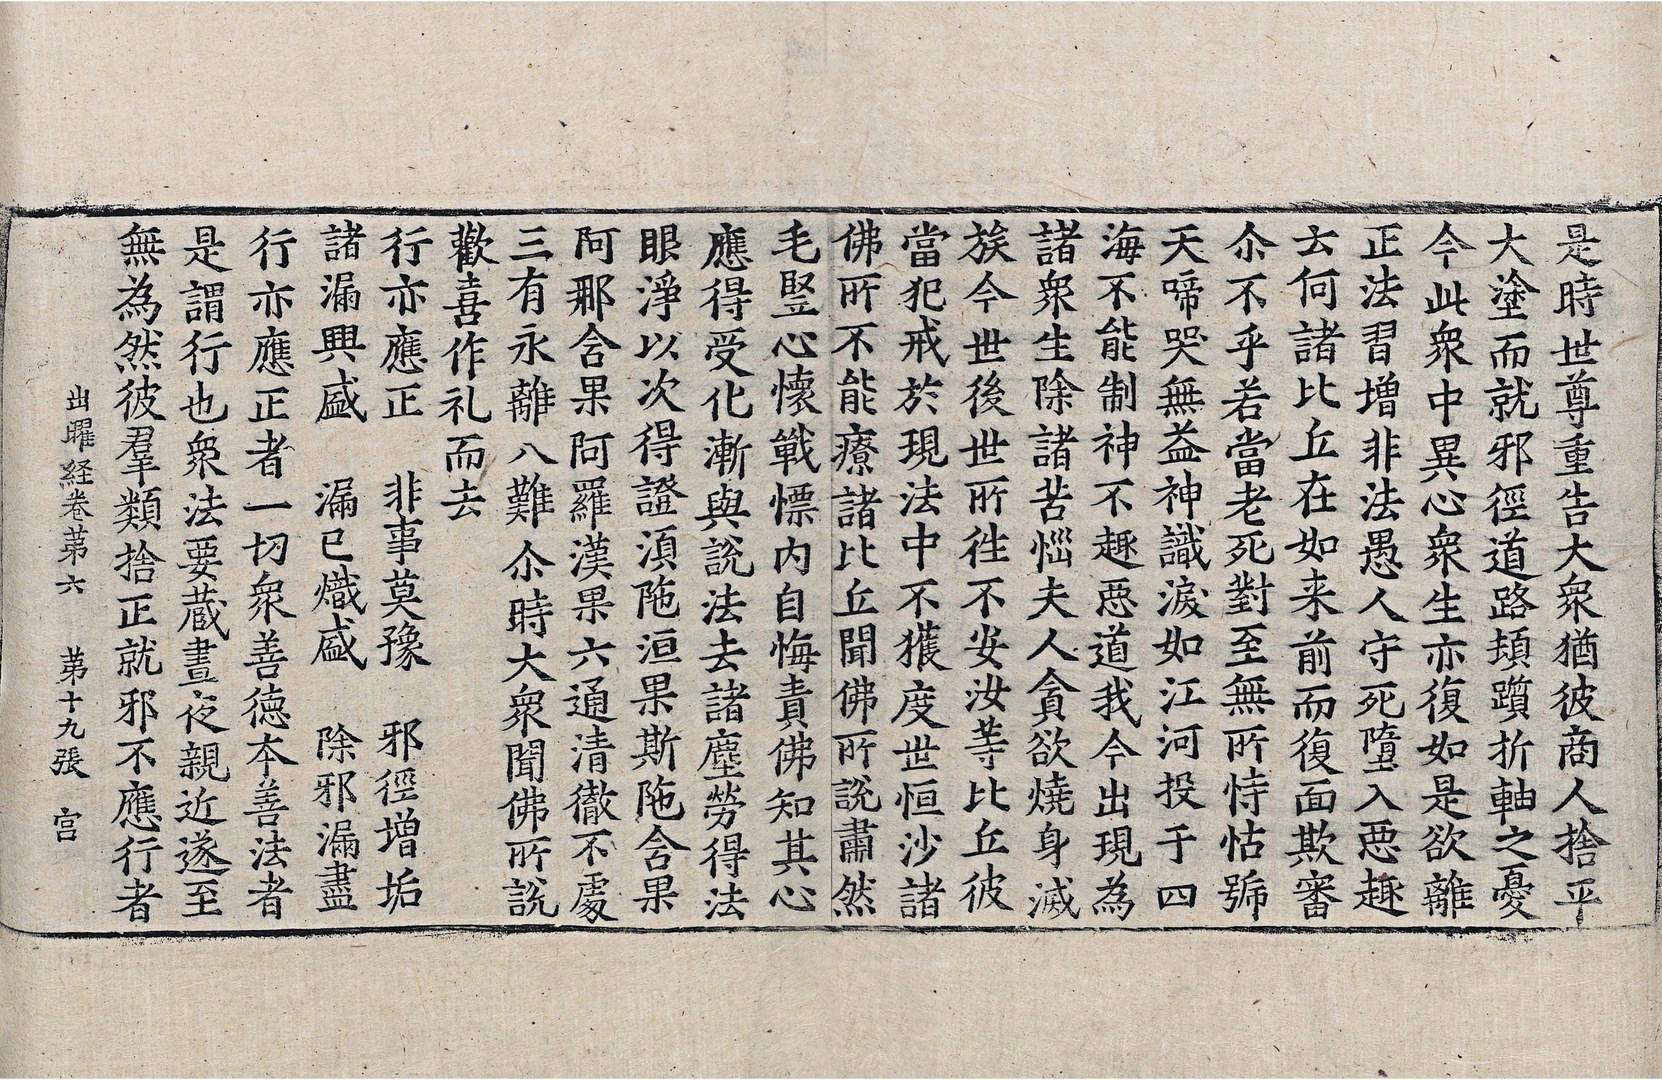 是時世尊重告大衆猶彼商人捨平
大塗而就邪徑道路頓躓折軸之憂
今此衆中異心衆生亦復如是欲離
正法習增非法愚人守死墮入惡趣
云何諸比丘在如来前而復面欺審
尒不乎若當老死對至無所恃怙號
天啼哭無益神識淚如江河投于四
海不能制神不趣惡道我今出現為
諸衆生除諸苦惱夫人貪欲燒身滅
族今世後世所徃不安汝等比丘彼
當犯戒於現法中不獲度世恒沙諸
佛所不能療諸比丘聞佛所說肅然
毛竪心懷戰慄內自悔責佛知其心
應得受化漸與說法去諸塵勞得法
眼淨以次得證湏陁洹果斯陁含果
阿那含果阿羅漢果六通清徹不處
三有永離八難尒時大衆聞佛所說
歡喜作礼而去
行亦應正　非事莫豫　邪徑增垢
諸漏興盛　漏已熾盛　除邪漏盡
行亦應正者一切衆善德本善法者
是謂行也衆法要蔵晝夜親近遂至
無為然彼羣類捨正就邪不應行者
出曜経卷苐六　苐十九張　宫